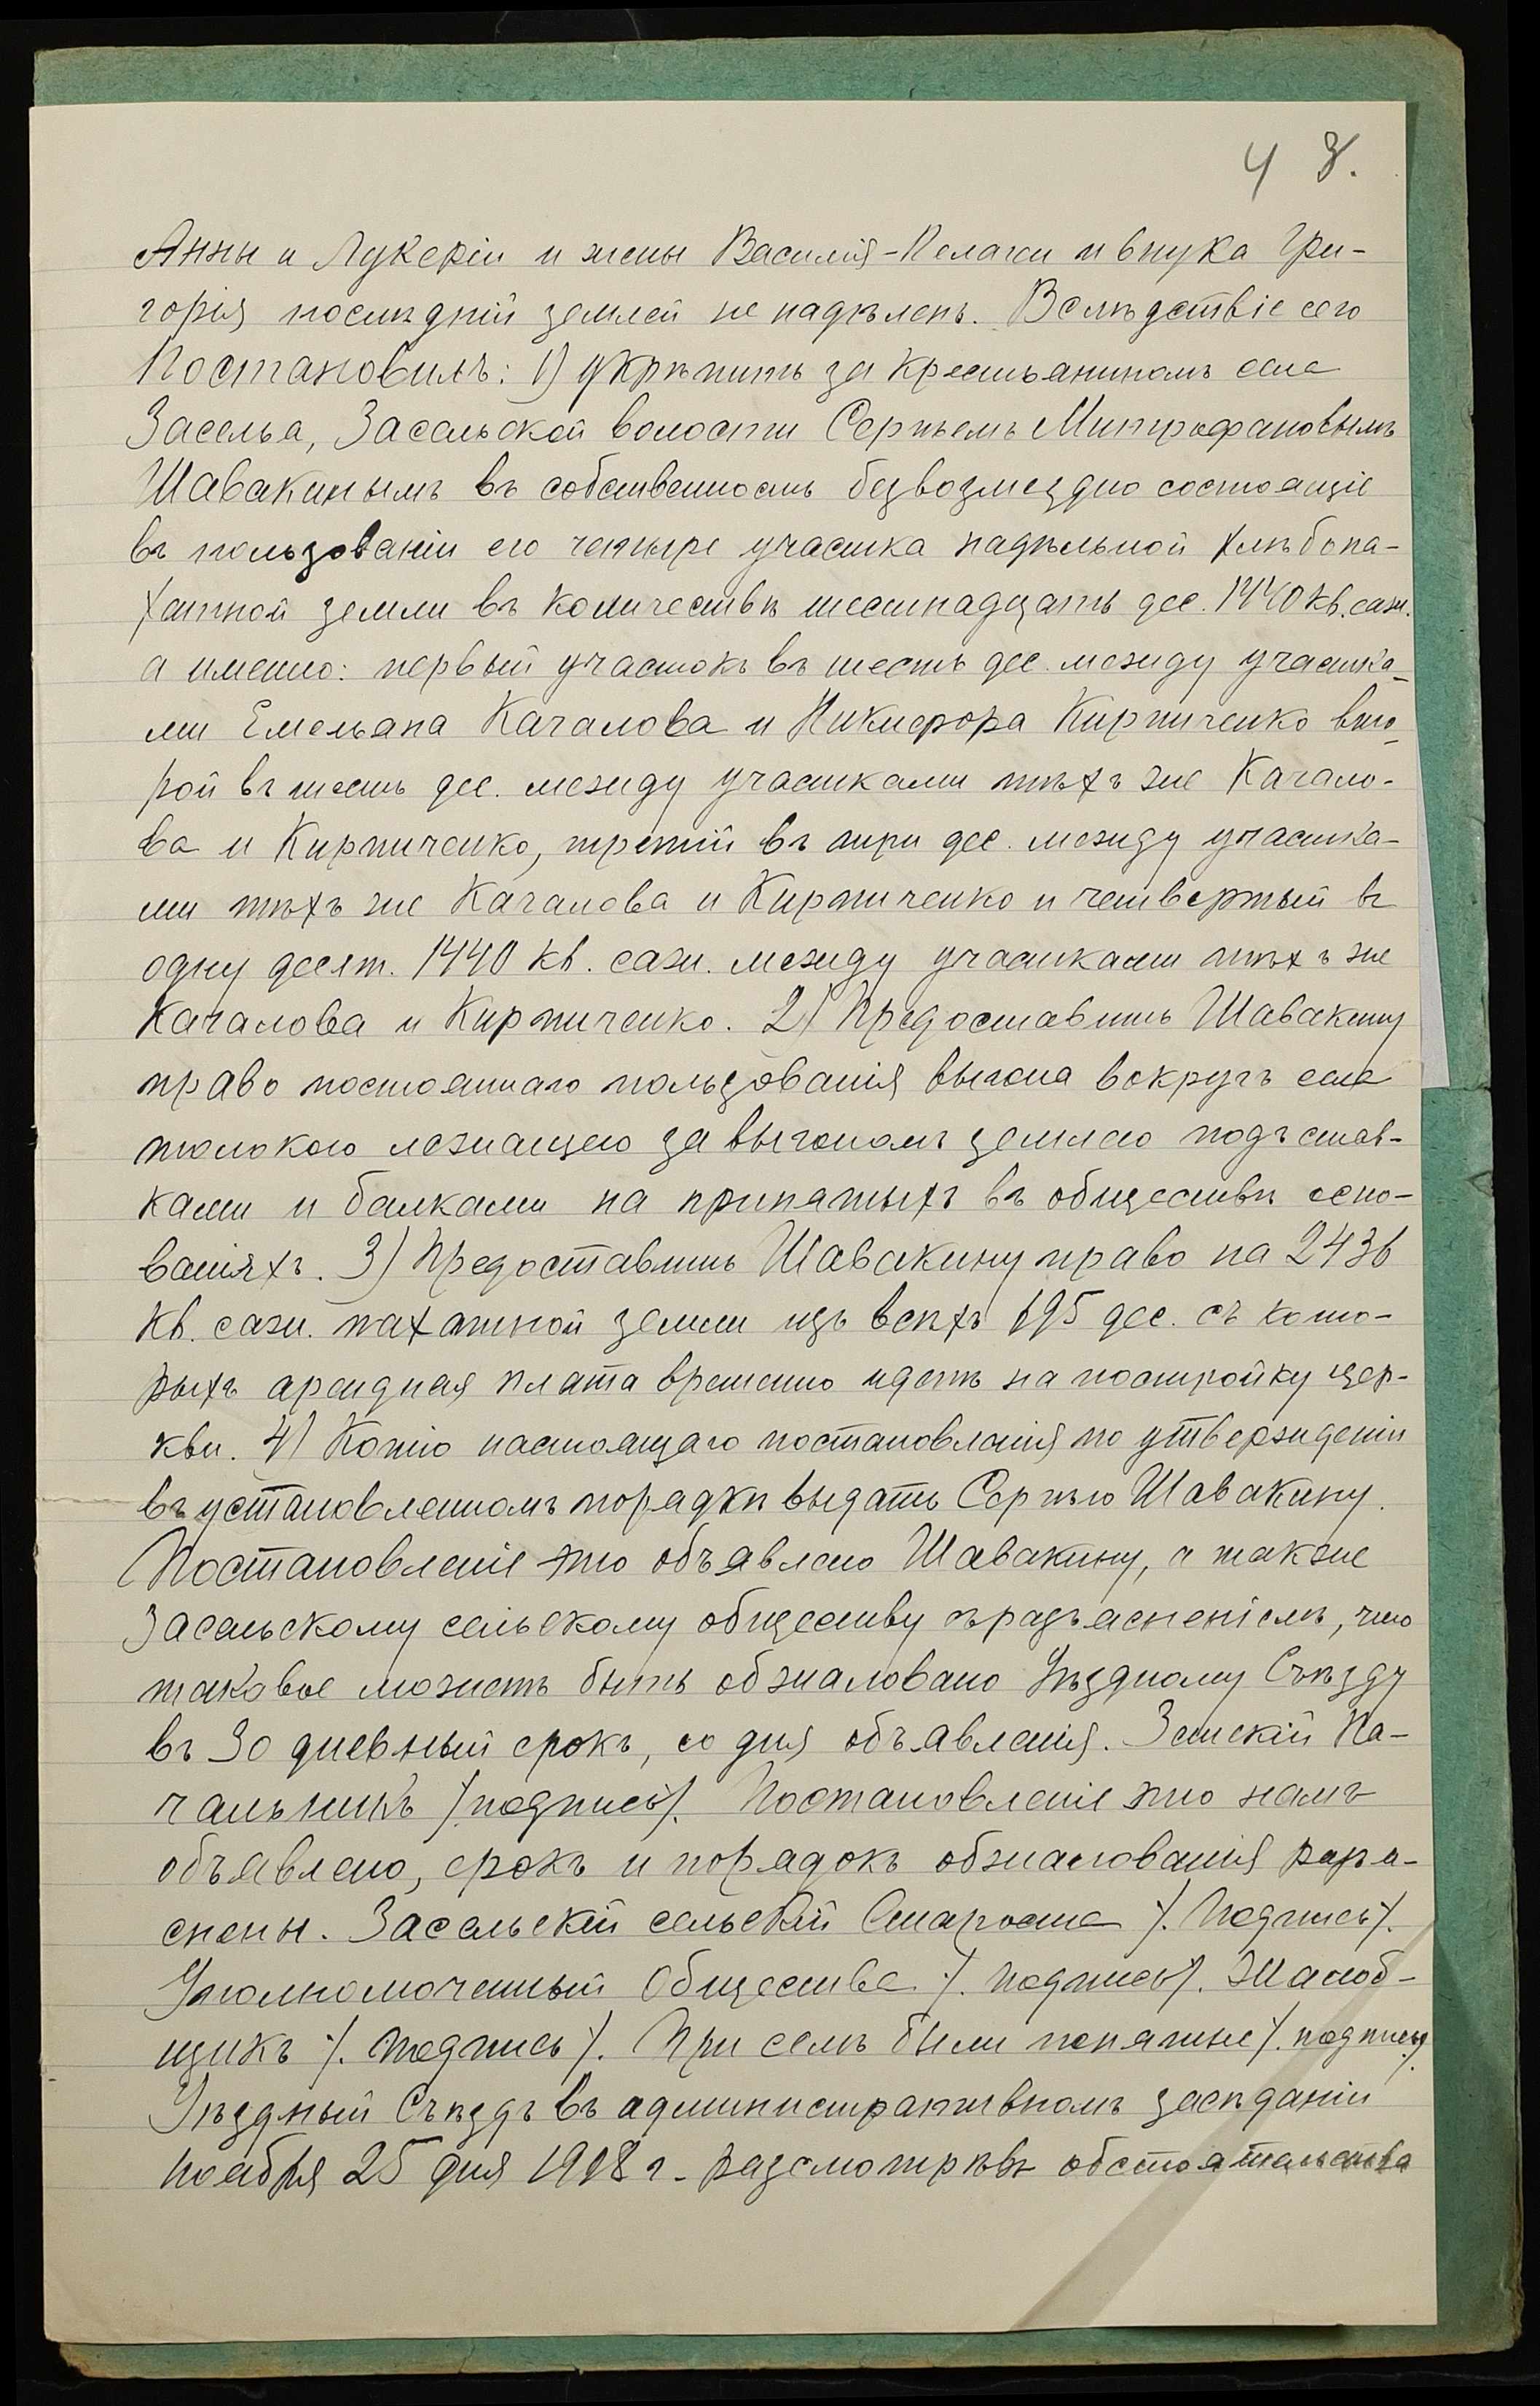 4 8.
Анны и Лукеріи и жены Василія-Пелагеи и внука Гри-
горія послѣдній землей не надѣленъ. Вслѣдствіе сего
Постановилъ: 1) укрѣпить за крестьяниномъ села
Заселья, Засельской волости Сергѣемъ Митрофановымъ
Шавакинымъ въ собственность безвозмездно состоящіе
въ пользованіи его четыре участка надѣльной хлѣбопа-
хатной земли въ количествѣ шестнадцать дес. 1440 кв. саж.
а именно: первый участокъ въ шесть дес. между участка-
ми Емельяна Качалова и Никифора Кирпиченко вто-
рой въ шесть дес. между участками тѣхъ же Качало-
ва и Кирпиченко, третій въ три дес. между участка-
ми тѣхъ же Качалова и Кирпиченко и четвертый въ
одну десят. 1440 кв. саж. между участками тѣхъ же
Качалова и Кирпиченко. 2) Предоставить Шавакину
право постояннаго пользованія выгона вокругъ села
толокою лежащею за выгономъ землею подъ став-
ками и балками на принятыхъ въ обществѣ осно-
ваніяхъ. 3) Предоставить Шавакину право на 2436
кв. саж. пахатной земли изъ всѣхъ 195 дес. съ кото-
рыхъ арендная плата временно идетъ на постройку цер-
кви. 4) Копію настоящаго постановленія по утвержденіи
въ установленномъ порядкѣ выдать Сергѣю Шавакину.
Постановленіе это объявлено Шавакину, а также
Засельскому сельскому обществу съ разъясненіемъ, что
таковое можетъ быть обжаловано Уѣздному Съѣзду
въ 30 дневный срокъ, со дня объявленія. Земскій На-
чальникъ /подпись/. Постановленіе это намъ
объявлено, срокъ и порядокъ обжалованія разъя-
снены. Засельскій сельскій Староста /. Подпись/.
Уполномоченный Общества /. подпись/. Жалоб-
щикъ /. подпись/. При семъ были понятые /. подписи/.
Уѣздный Съѣздъ въ административномъ засѣданіи
ноября 25 дня 1908 г. разсмотрѣвъ обстоятельства